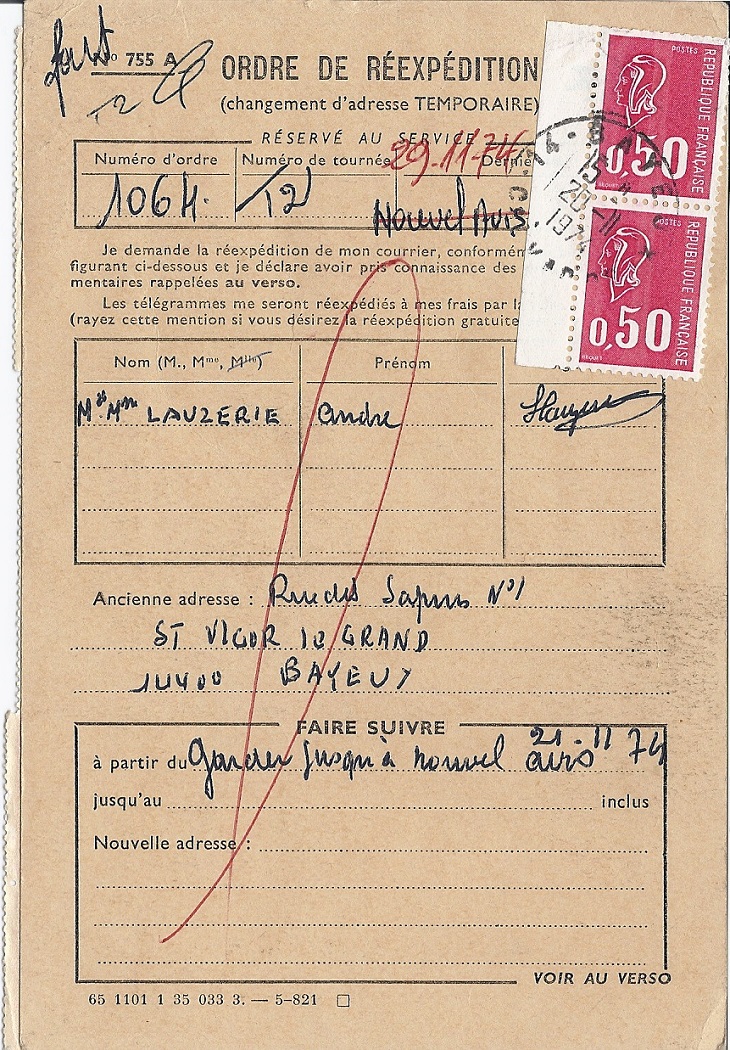 N° 755 A
T2
ORDRE DE RÉEXPÉDITION
(changement d'adresse TEMPORAIRE)
RÉSERVÉ AU SERVICE
Numéro d'ordre Numéro de tournée Derniè
29-11-74
1064. T2
Nouvel Avis
Je demande la réexpédition de mon courrier, conformém
figurant ci-dessous et je déclare avoir pris connaissance des
mentaires rappelées au verso.
Les télégrammes me seront réexpédiés à mes frais par la
(rayez cette mention si vous désirez la réexpédition gratuite
POSTES
RÉPUBLIQUE FRANÇAISE
0,50
BEQUET
POSTES
RÉPUBLIQUE FRANÇAISE
0,50
BEQUET
14 - BAYEUX
20-11
1974
Nom (M., Mme, Mlle) Prénom
Mr Mme LAUZERIE André
Ancienne adresse : Rue des Sapins N°1
ST VIGOR le GRAND
14400 BAYEUX
FAIRE SUIVRE
21-11 74
à partir du Garder jusqu'à nouvel avis
jusqu'au inclus
Nouvelle adresse :
VOIR AU VERSO
65 1101 1 35 033 3. — 5-821